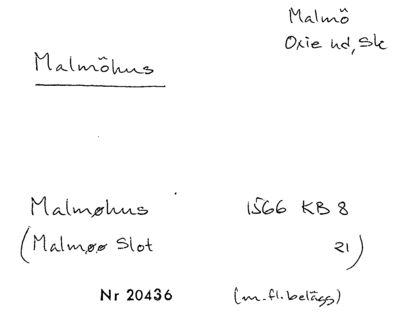 Malmö
Oxie hd, Sk
Malmöhus
Malmøhus 1566 KB 8
(Malmøø Slot 21)
Nr 20436 (m.fl. belägg)